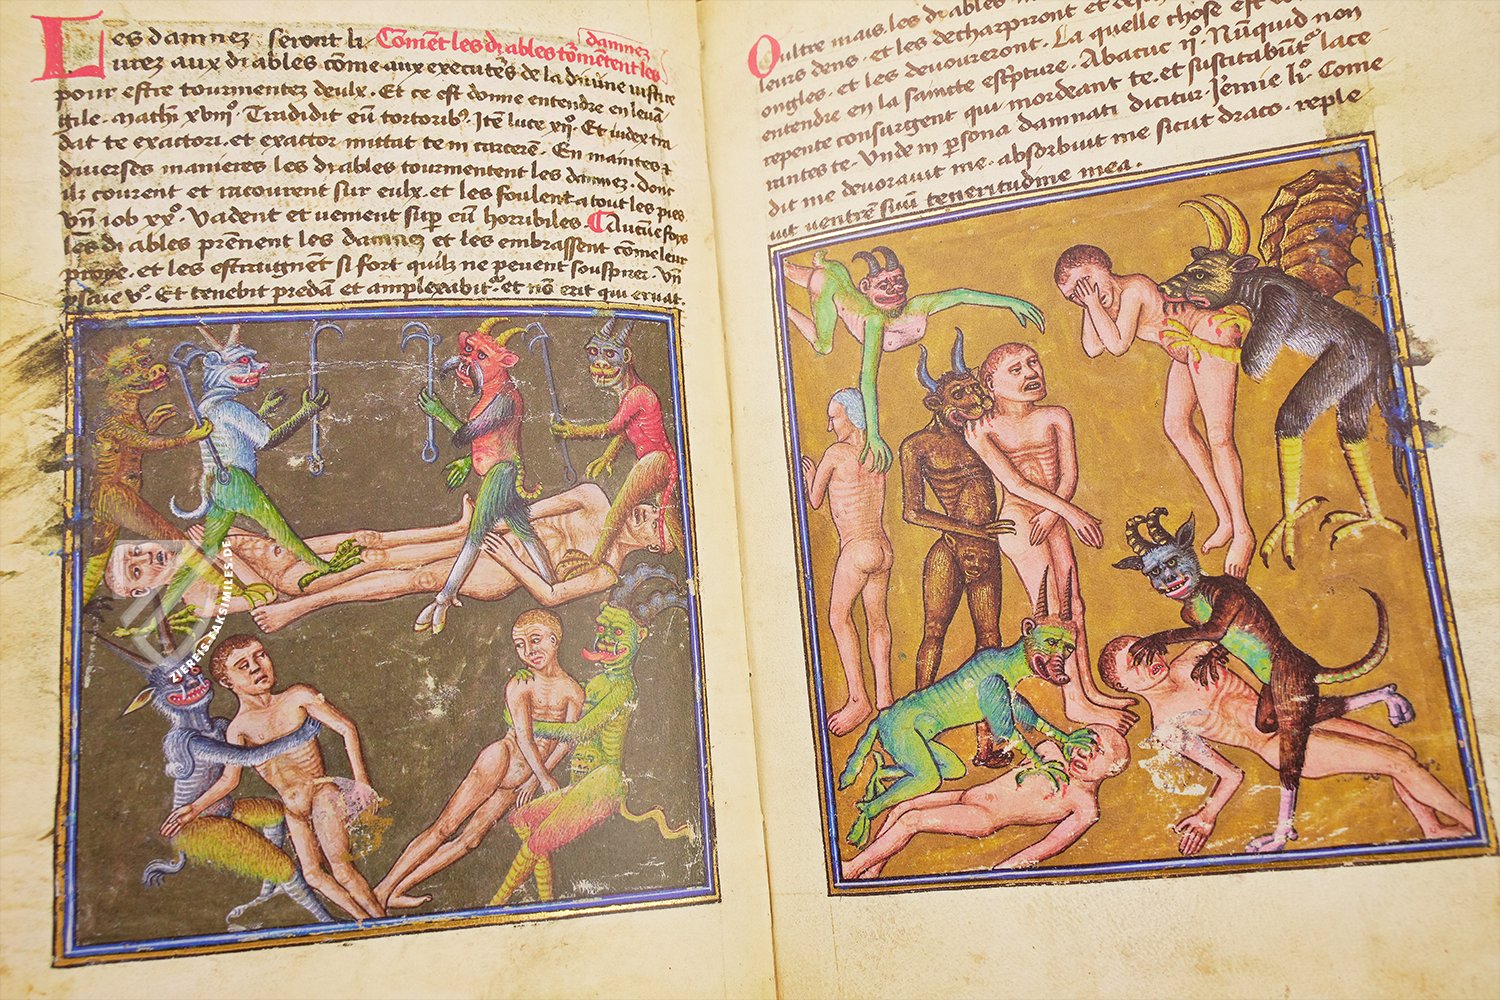 Les damnez seront li Cōmēt les diables tōrmētent les damnez
urez aux diables cōme aux executēs de la divine iustice
pour estre tourmentez deulx. Et ce est donne entendre en levā
gile. mathi xviijº. Tradidit eū tortoribꝰ. Itē luce xijº. Et iudex tra
dat te exactori. et exactor mittat te in carcerē. En maintes
diverses manieres les diables tourmentent les damnez. donc
ilz courent et racourent sur eulx. et les foulent a tout les pies
Vn̄ iob xxº. Vadent et uement sup eū horribiles. Aucūe foys
les diables prēnent les damnez et les embrassent cōme leur
proye. et les estraignēt si fort quilz ne peuent souspirer. Vn̄
ysaie vº. Et tenebit predā et amplexabitʳ. et nō erit qui eruat.
Oultre mais les diables
leurs dens. et les decharpiront et
ongles. et les devoureront. La quelle chose est
entendre en la saincte esc̄pture. Abacuc ijº. Nūquid non
repente consurgent qui mordeant te. et suscitabūtʳ lace
rantes te. Unde in ꝑsona damnati dicitur Iēmie li. Come
dit me devoravit me. absorbuit me sicut draco. reple
uit ventrē suū teneritudine mea.
ZIEREIS FAKSIMILES.DE